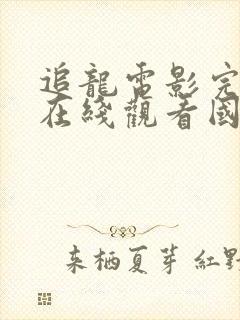 追龍電影完
在綫觀看國
来栖夏芽 紅野